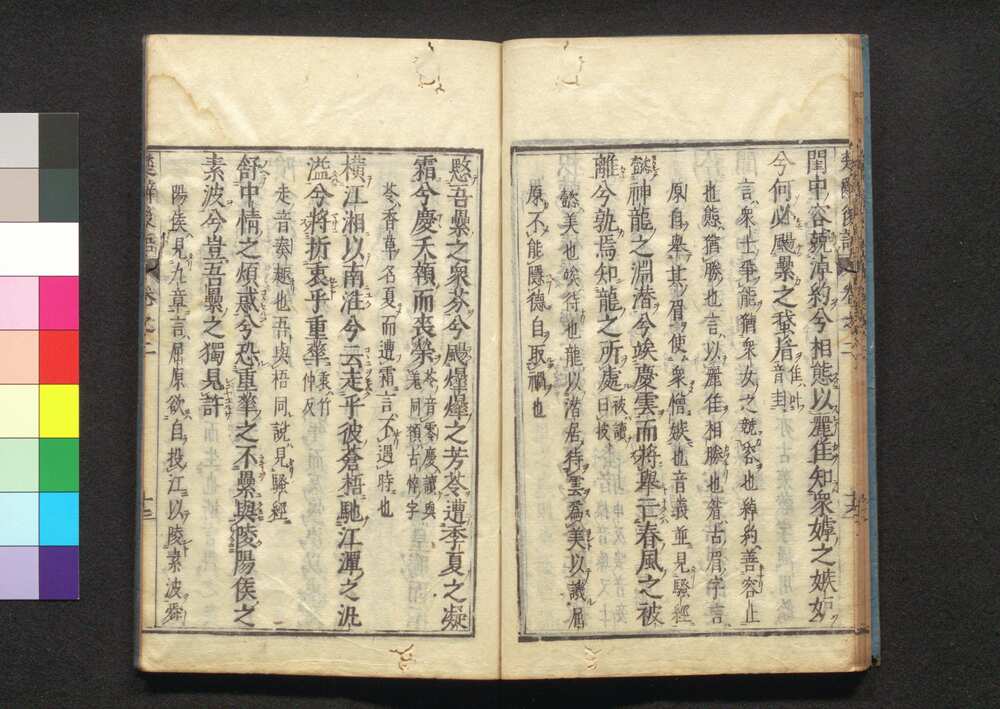 閨中容競淖約兮相態以麗佳知衆嫭之嫉妒
兮何必颺纍之蛾眉
言衆士爭能猶衆女之競容也綽約善容止
也態猶勝也言以麗佳相勝也眉古眉字言
原自舉其眉使衆憎嫉也音義並見騷經
懿神龍之淵潛兮竢慶雲而將舉亡春風之被
離兮孰焉知龍之所處被讀曰披
懿美也竢待也龍以潛居待雲爲美以譏屈
原不能隱德自取禍也
愍吾纍之衆芬兮颺燁燁之芳苓遭季夏之凝
霜兮慶夭顇而喪榮苓音零慶讀與羌同顇古悴字
苓香草名夏而遭霜言不遇時也
橫江湘以南泩兮云走乎彼蒼梧馳江潭之汎
溢兮將折衷乎重華衷竹仲反
走音奏趣也吾與梧同說見騷經
舒中情之煩惑兮恐重華之不纍與陵陽侯之
素波兮豈吾纍之獨見許
陽侯見九章言屈原欲自投江以陵素波舜
楚辭後語 卷之二 十三